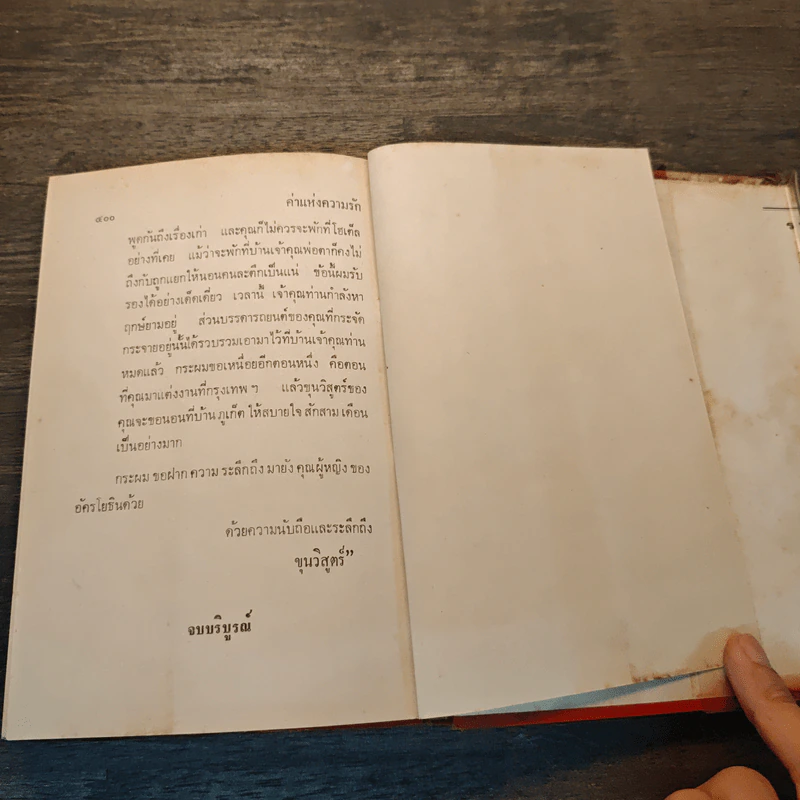 ๔๐๐
ค่าแห่งความรัก
พูดกันถึงเรื่องเก่า และคุณก็ไม่ควรจะพักที่โฮเต็ล
อย่างที่เคย แม้ว่าจะพักที่บ้านเจ้าคุณพ่อตาก็คงไม่
ถึงกับถูกแยกให้นอนคนละตึกเป็นแน่ ข้อนี้ผมรับ
รองได้อย่างเด็ดเดี่ยว เวลานี้ เจ้าคุณท่านกำลังหา
ฤกษ์ยามอยู่ ส่วนบรรดารถยนต์ของคุณที่กระจัด
กระจายอยู่นั้นได้รวบรวมเอามาไว้ที่บ้านเจ้าคุณท่าน
หมดแล้ว กระผมขอเหนื่อยอีกตอนหนึ่ง คือตอน
ที่คุณมาแต่งงานที่กรุงเทพ ฯ แล้วขุนวิสูตร์ของ
คุณจะขอนอนที่บ้าน ภูเก็ต ให้สบายใจ สักสาม เดือน
เป็นอย่างมาก
กระผม ขอฝาก ความ ระลึกถึง มายัง คุณผู้หญิง ของ
อัครโยธินด้วย
ด้วยความนับถือและระลึกถึง
ขุนวิสูตร์”
จบบริบูรณ์